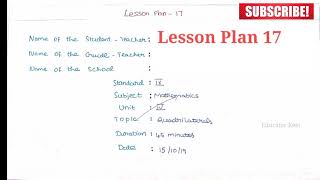 Lesson Plan - 17
SUBSCRIBE!
Lesson Plan 17
Name of the Student - Teacher :
Name of the Guide - Teacher :
Name of the School :
Standard : IX
Subject : Mathematics
Unit : IV
Topic : Quadrilaterals
Duration : 45 minutes
Date : 15/10/19